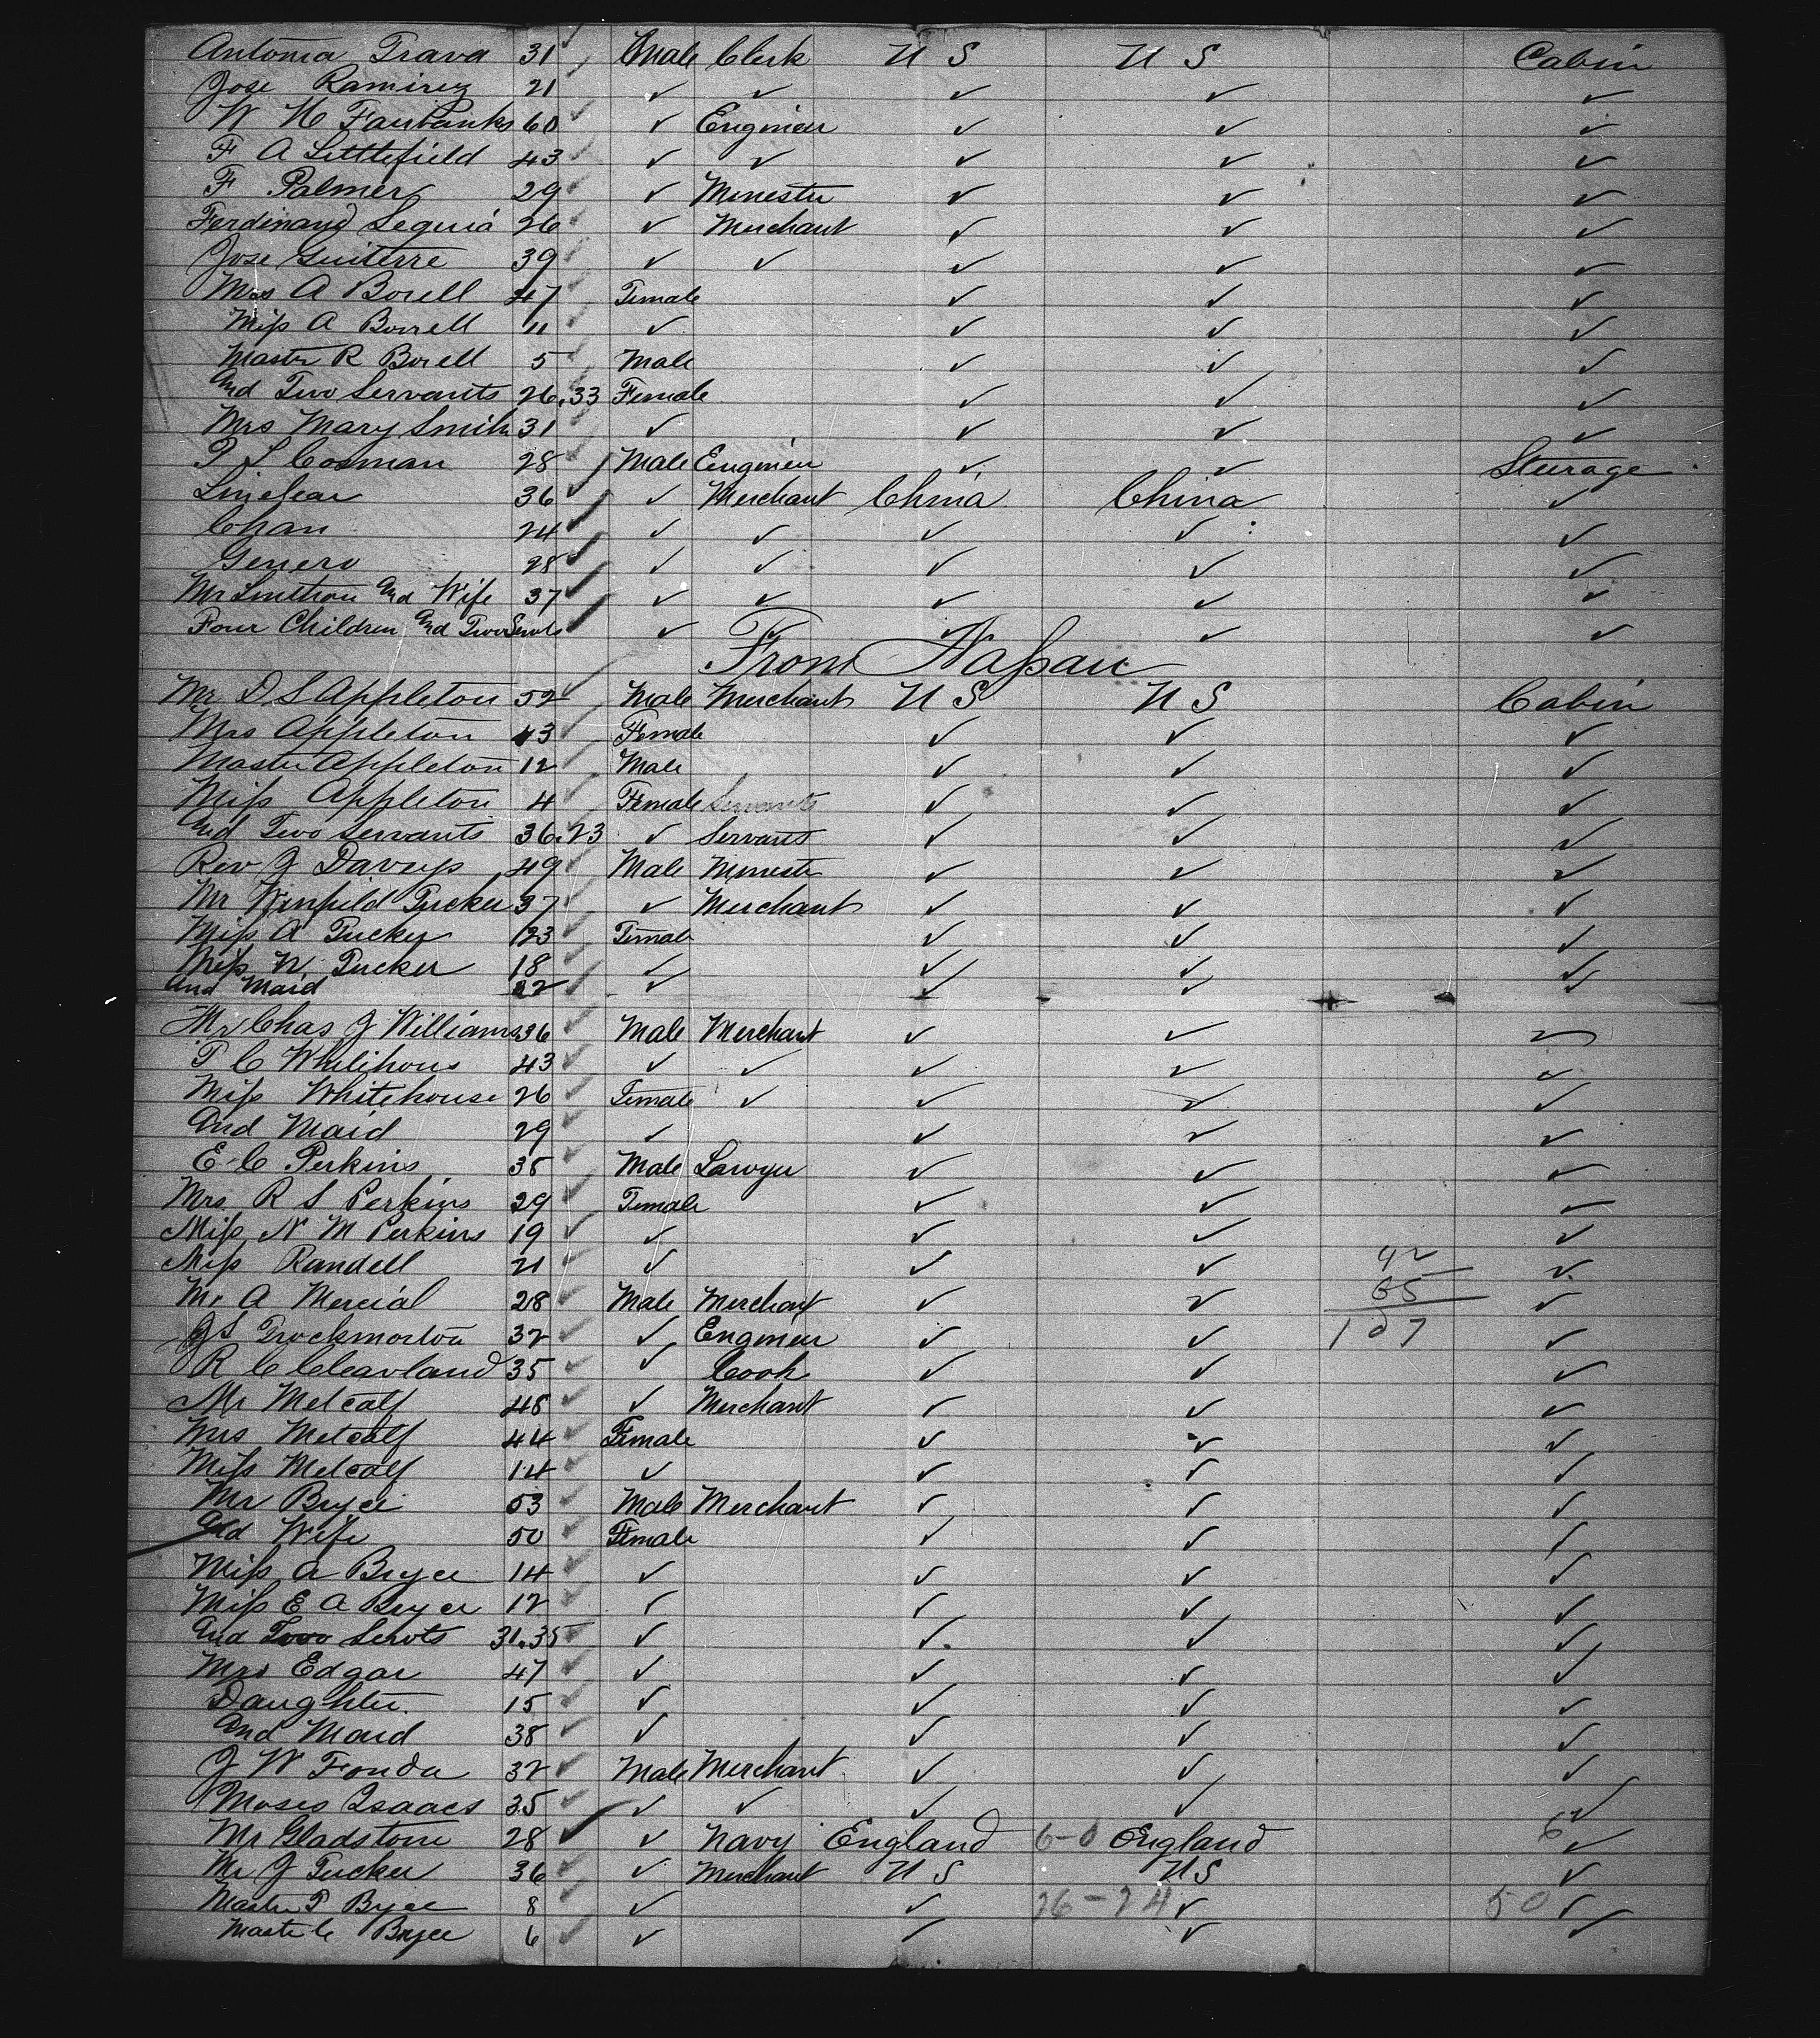 Antonia Trava 31 Male Clerk U S U S Cabin
Jose Ramirez 21 ✓ ✓ ✓ ✓ ✓
W H Fairbanks 60 ✓ Engineer ✓ ✓ ✓
F A Littlefield 43 ✓ ✓ ✓ ✓ ✓
F Palmer 29 ✓ Minester ✓ ✓ ✓
Ferdinand Sequia 26 ✓ Merchant ✓ ✓ ✓
Jose Guiterre 39 ✓ ✓ ✓ ✓ ✓
Mrs A Borell 47 Female ✓ ✓ ✓
Miss A Borrell 11 ✓ ✓ ✓ ✓
Master R Borell 5 Male ✓ ✓ ✓
And Two Servants 26.33 Female ✓ ✓ ✓
Mrs Mary Smith 31 ✓ ✓ ✓ ✓
P L Cosman 28 Male Engineer ✓ ✓ Sturage
36 ✓ Merchant China China ✓
Chan 24 ✓ ✓ ✓ ✓ ✓
Genero 28 ✓ ✓ ✓ ✓ ✓
Mr And Wife 37 ✓ ✓ ✓ ✓ ✓
Four Children And Two Servts ✓ ✓ ✓ ✓
From Nassau
Mr D S Appleton 52 Male Merchant U S U S Cabin
Mrs Appleton 43 Female ✓ ✓ ✓
Master Appleton 12 Male ✓ ✓ ✓
Miss Appleton 4 Female Servants ✓ ✓ ✓
And Two Servants 36.23 ✓ Servants ✓ ✓ ✓
Rev J Davys 49 Male Minester ✓ ✓ ✓
Mr Winfield Tucker 37 ✓ Merchant ✓ ✓ ✓
Miss A Tucker 23 Female ✓ ✓ ✓
Miss N Tucker 18 ✓ ✓ ✓ ✓
And Maid 22 ✓ ✓ ✓ ✓
Mr Chas J Williams 36 Male Merchant ✓ ✓ ✓
P C Whitehous 43 ✓ ✓ ✓ ✓ ✓
Miss Whitehouse 26 Female ✓ ✓ ✓ ✓
And Maid 29 ✓ ✓ ✓ ✓
E C Perkins 35 Male Lawyer ✓ ✓ ✓
Mrs R S Perkins 29 Female ✓ ✓ ✓
Miss N M Perkins 19 ✓ ✓ ✓ ✓
Miss Randell 21 ✓ ✓ ✓ 42 ✓
Mr A Mercial 28 Male Merchant ✓ ✓ 65 ✓
J S Trockmorton 32 ✓ Engineer ✓ ✓ 107 ✓
R C Cleavland 35 ✓ Cook ✓ ✓ ✓
Mr Metcalf 48 ✓ Merchant ✓ ✓ ✓
Mrs Metcalf 44 Female ✓ ✓ ✓
Miss Metcalf 14 ✓ ✓ ✓ ✓
Mr Bryce 53 Male Merchant ✓ ✓ ✓
And Wife 50 Female ✓ ✓ ✓
Miss A Bryce 14 ✓ ✓ ✓ ✓
Miss E A Bryce 12 ✓ ✓ ✓ ✓
And Two Servts 31.35 ✓ ✓ ✓ ✓
Mrs Edgar 47 ✓ ✓ ✓ ✓
Daughter 15 ✓ ✓ ✓ ✓
And Maid 38 ✓ ✓ ✓ ✓
J W Fonda 32 Male Merchant ✓ ✓ ✓
Moses Isaacs 35 ✓ ✓ ✓ ✓ ✓
Mr Gladstone 28 ✓ Navy England 6-0 England ✓
Mr J Tucker 36 ✓ Merchant U S U S ✓
Master P Bryce 8 ✓ ✓ 26-24 ✓ 50 ✓
Master C Bryce 6 ✓ ✓ ✓ ✓